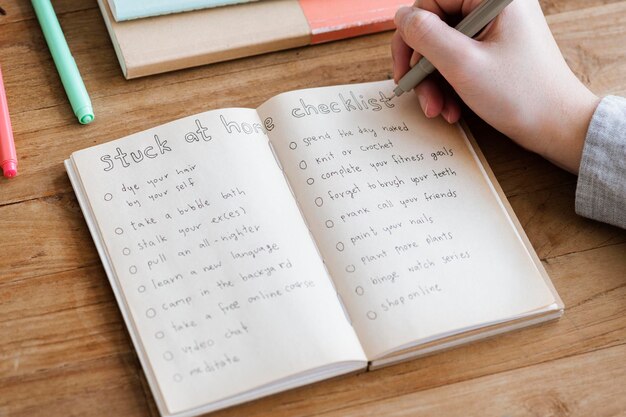 stuck at home checklist
dye your hair
by your self
take a bubble bath
stalk your exc(es)
pull an all-nighter
learn a new language
camp in the backyard
take a free online course
video chat
meditate
spend the day naked
knit or crochet
complete your fitness goals
forget to brush your teeth
prank call your friends
paint your nails
plant more plants
binge watch series
shop online